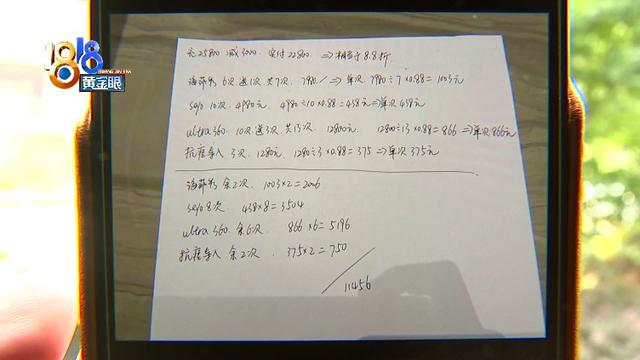 1818
黄金眼
充25800 减3000. 实付22800 ⇒ 相当于8.8折
海菲秀 6次送1次 共7次. 7980/ ⇒ 单次 7980÷7×0.88=1003元
seyo 10次. 4980元. 4980÷10×0.88=438元⇒单次438元
ultra360. 10次送3次 共13次. 12800元. 12800÷13×0.88=866 ⇒单次866元
抗痘导入 3次. 1280元 1280÷3×0.88=375 ⇒单次375元
海菲秀 余2次. 1003×2=2006
seyo 8次. 438×8=3504
ultra 360. 余6次 866×6=5196
抗痘导入 余2次. 375×2=750
11456